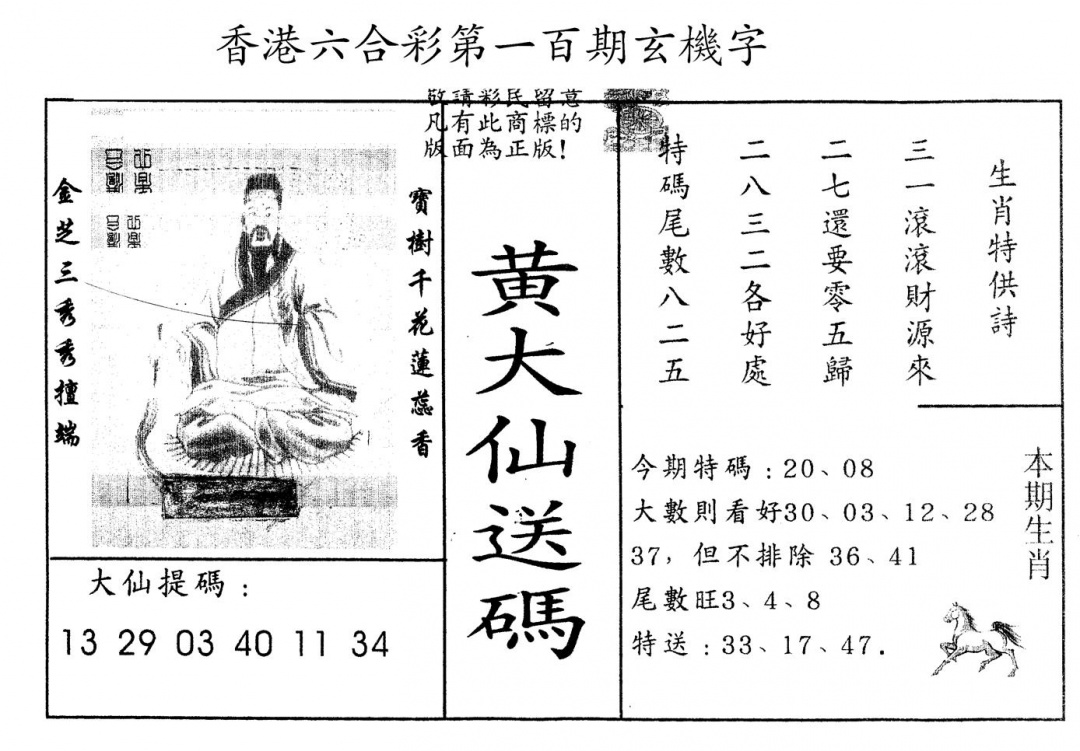 香港六合彩第一百期玄機字
敬請彩民留意
凡有此商標的
版面為正版!
寶樹千花蓮蕊香
金芝三秀秀擅端
黃大仙送碼
大仙提碼:
13 29 03 40 11 34
生肖特供詩
三一滾滾財源來
二七還要零五歸
二八三二各好處
特碼尾數八二五
今期特碼:20、08
大數則看好30、03、12、28
37,但不排除 36、41
尾數旺3、4、8
特送:33、17、47.
本期生肖